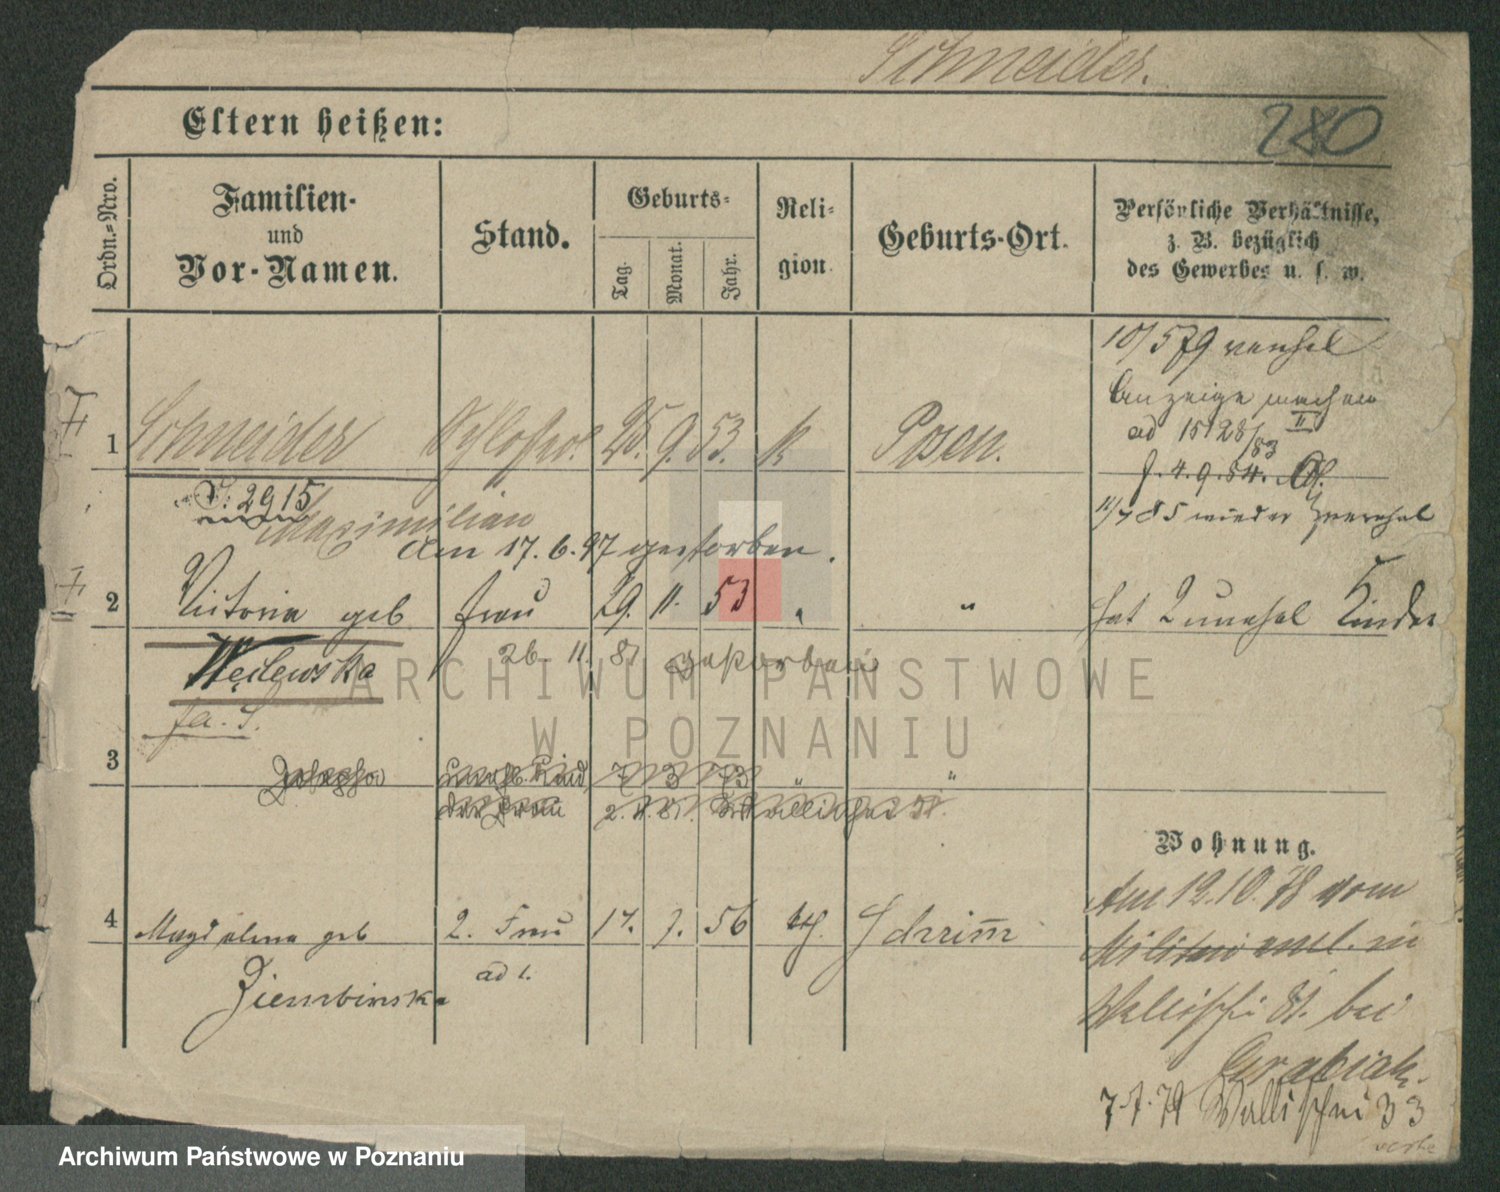 Schneider.
280
Eltern heißen:
Ordn.-Nro.
Familien-
und
Vor-Namen.
Stand.
Geburts-
Tag.
Monat.
Jahr.
Reli-
gion.
Geburts-Ort.
Persönliche Verhältnisse,
z. B. bezüglich
des Gewerbes u. s. w.
10/5 79
Anzeige machen
ad 15128/83 II
1 Schneider 25. 9. 53. k Posen.
f. 4. 9. 84.
V: 2915
11/7 85 wieder
Maximilian
am 17. 6. 97 gestorben.
2 Victoria geb Frau 29. 11. 53 " "
hat 2 unehel Kinder
Węclewska
26 11. 81 gestorben
fa. S.
3 Josepha unehl. Kind 7 3 73 " "
der Frau 2. 4. 81. Wallischei
Wohnung.
4 Magdalena geb 2. Frau 17. 7. 56 kth. Schrimm
Ziembinska
ad 1.
Am 12.10.78 vom
Militair entl. in
Wallischei 81. bei
Grabiak.
7.7.79 Wallischei 33
ARCHIWUM PAŃSTWOWE
W POZNANIU
Archiwum Państwowe w Poznaniu